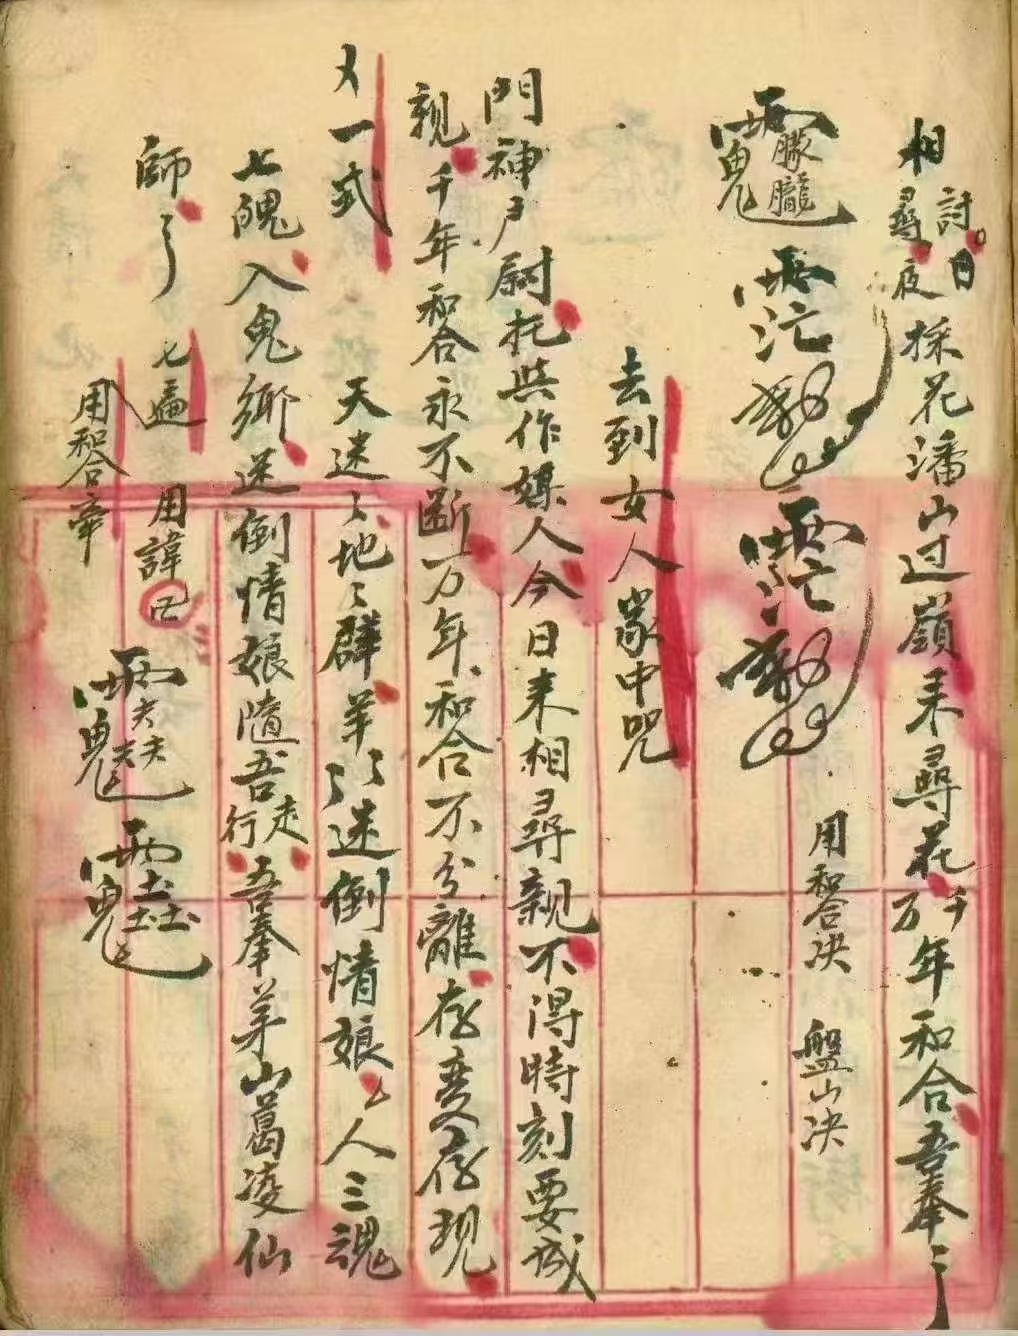 相尋討。日夜採花潘山过嶺来尋花千万年和合吾奉
朦朧
用和合决 盤山决
去到女人家中咒
門神户尉托与作媒人今日来相尋親不得時刻要成
親千年和合永不断万年和合不分離存变存現
又一式 天迷〻地〻羣羊〻迷倒情娘〻人三魂
七魄入鬼鄉迷倒情娘隨吾行走吾奉茅山葛凌仙
師 七遍 用諱
用和合牽